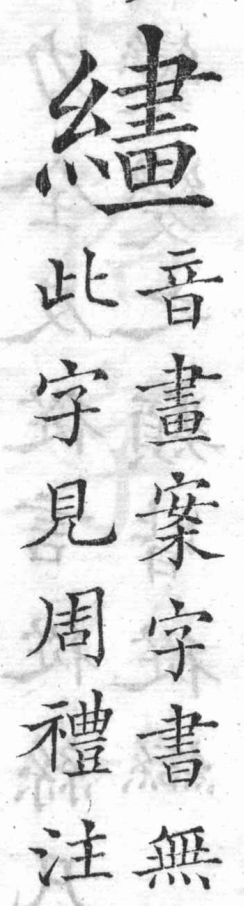 繣
音畫案字書無
此字見周禮注